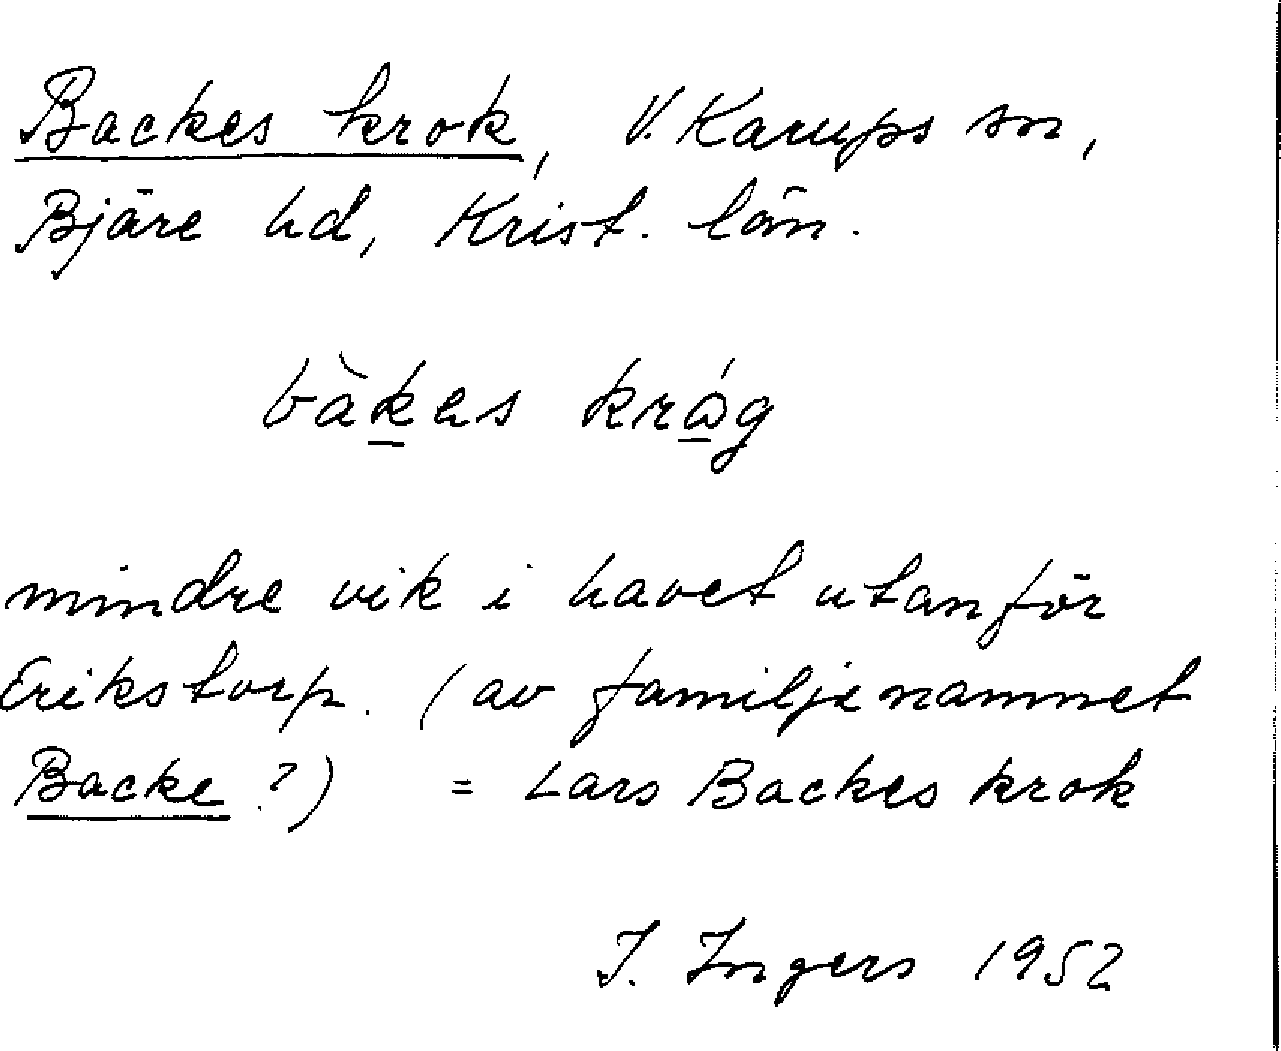 Backes krok, V. Karups sn,
Bjäre hd, Krist. län.
bàkes króg
mindre vik i havet utanför
Erikstorp. (av familjenamnet
Backe?) = Lars Backes krok
I. Ingers 1952